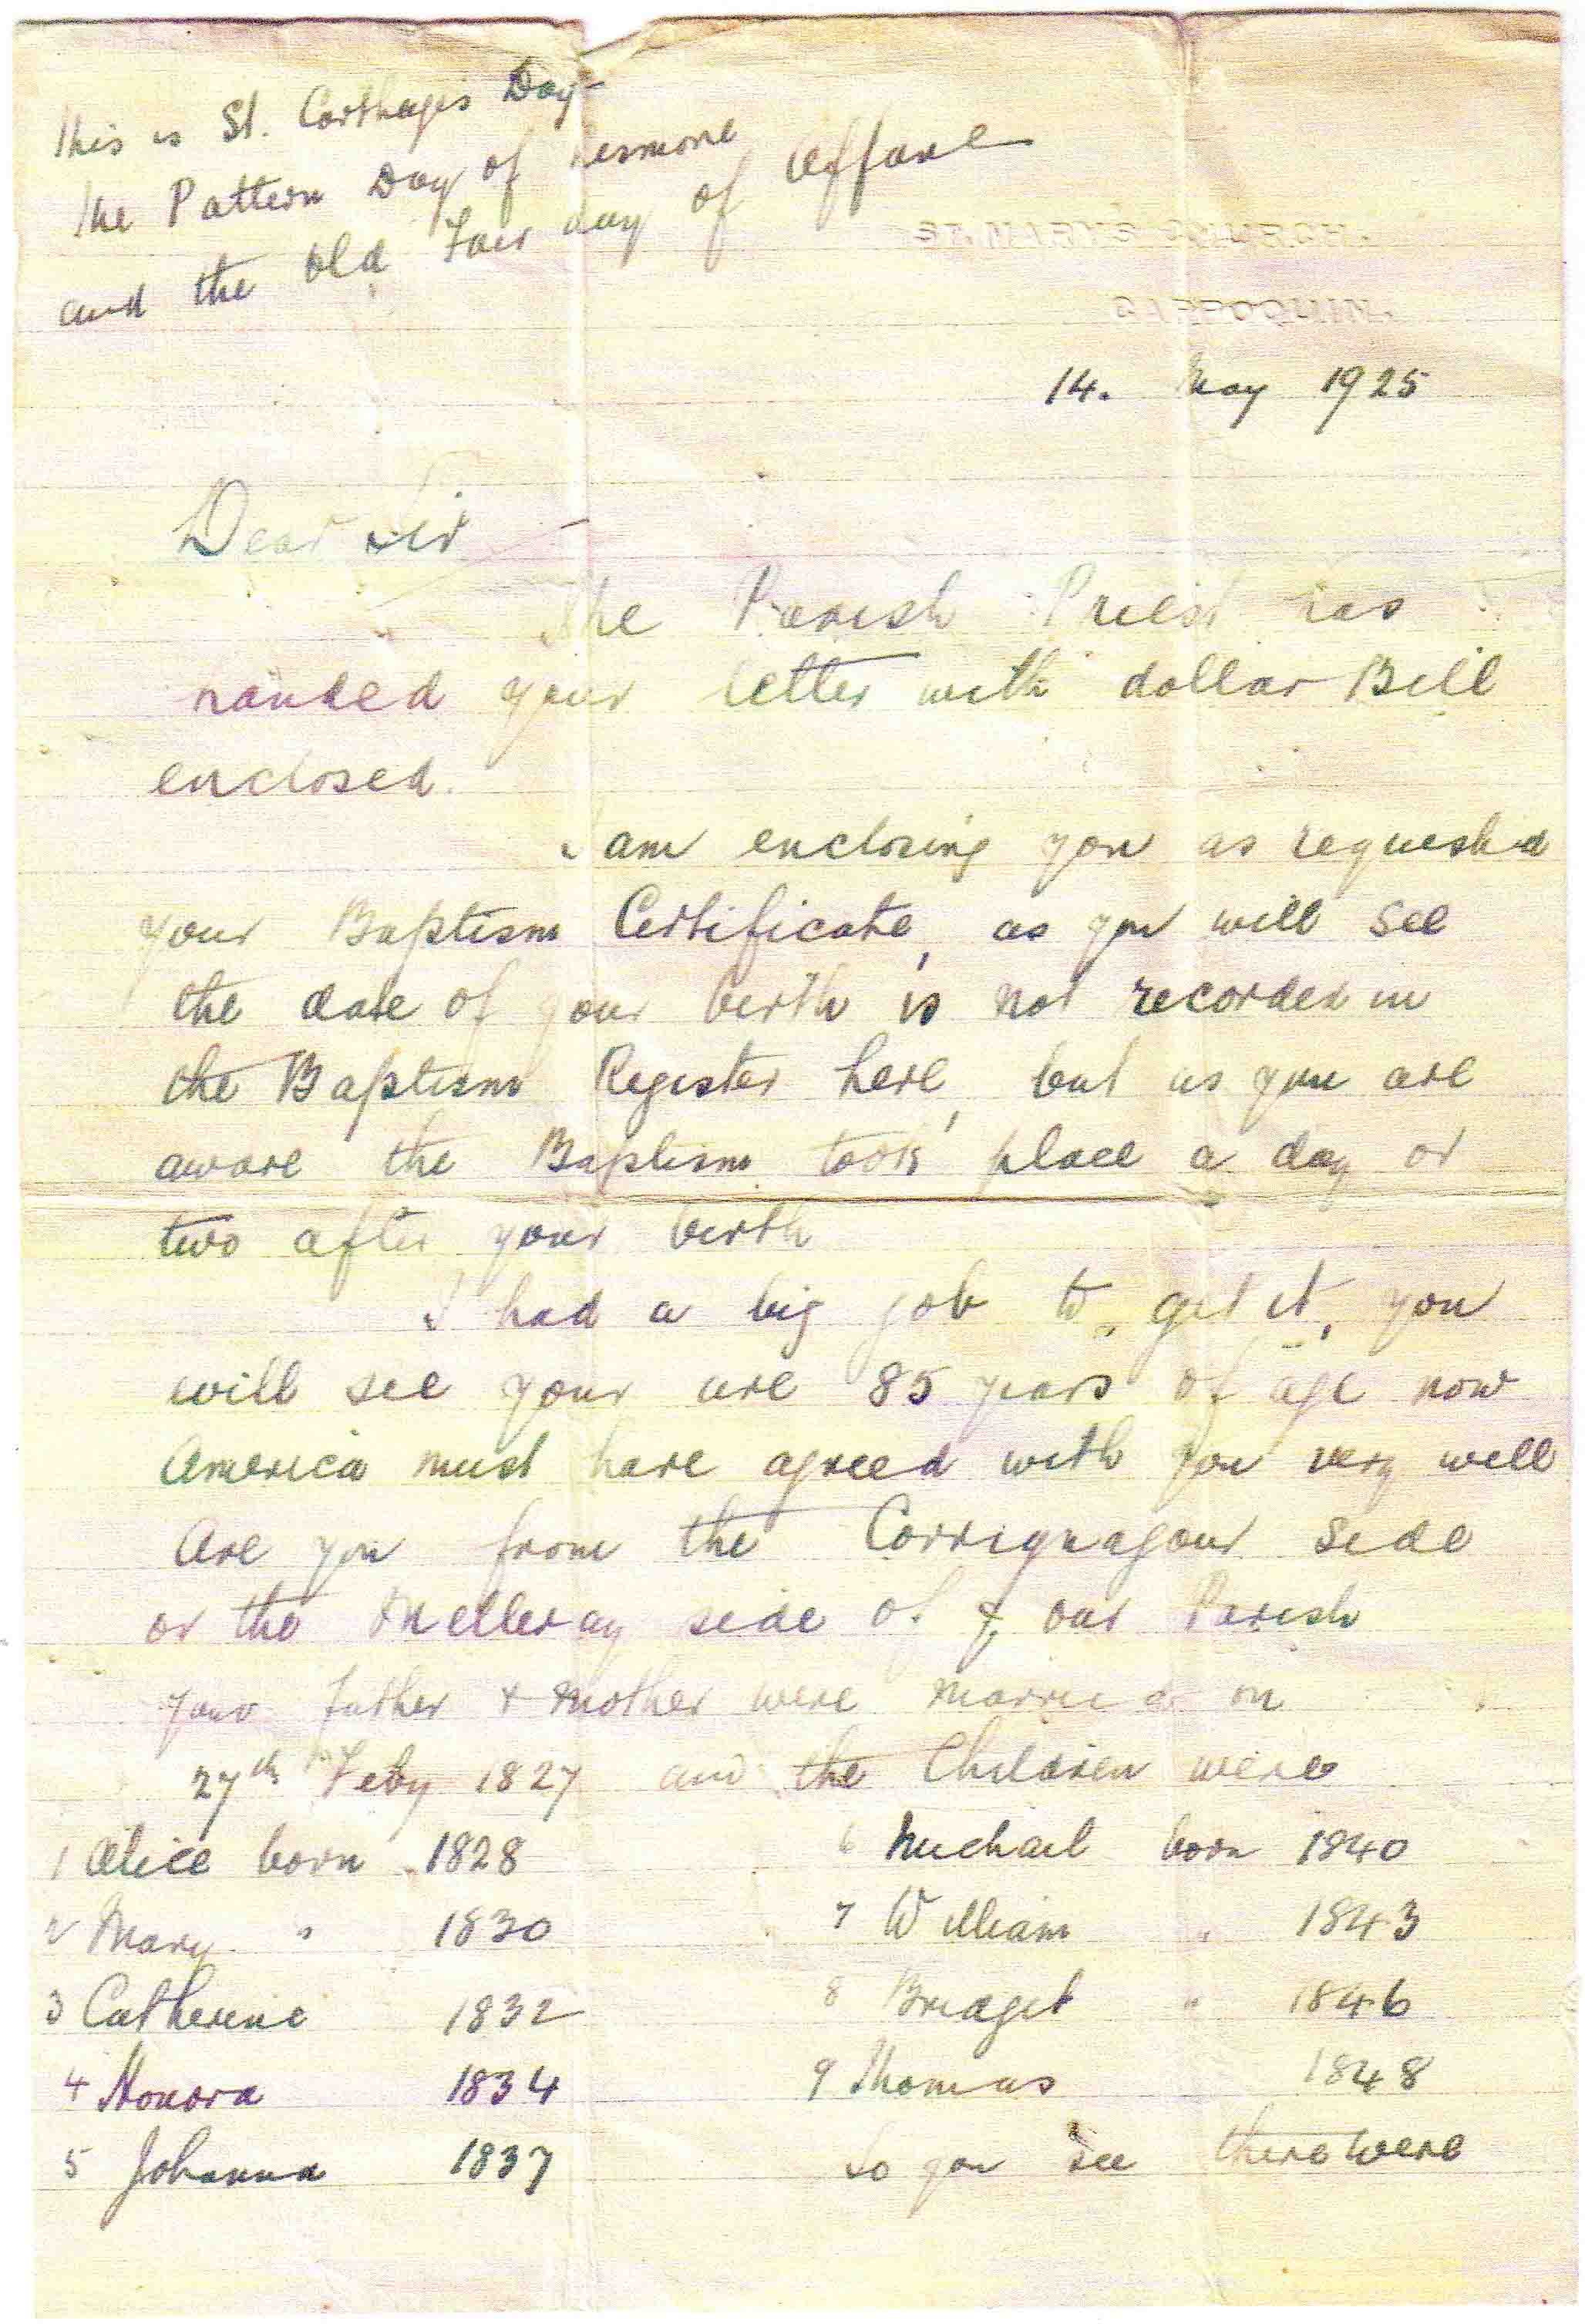 This is St. Carthage's Day-
the Pattern Day of Lismore
and the old Fair day of Affane
ST. MARY'S CHURCH.
CAPPOQUIN.
14. May 1925
Dear Sir
The Parish Priest has
handed your letter with dollar Bill
enclosed.
I am enclosing you as requested
your Baptism Certificate, as you will see
the date of your birth is not recorded in
the Baptism Register here, but as you are
aware the Baptism took place a day or
two after your birth
I had a big job to get it, you
will see your are 85 years of age now
America must have agreed with you very well
Are you from the Carrignagour side
or the Melleray side of & our Parish
your father & mother were married on
27th Feby 1827 and the Children were
1 Alice born 1828
2 Mary " 1830
3 Catherine 1832
4 Honora 1834
5 Johanna 1837
6 Michael born 1840
7 William " 1843
8 Bridget " 1846
9 Thomas 1848
So you see there were